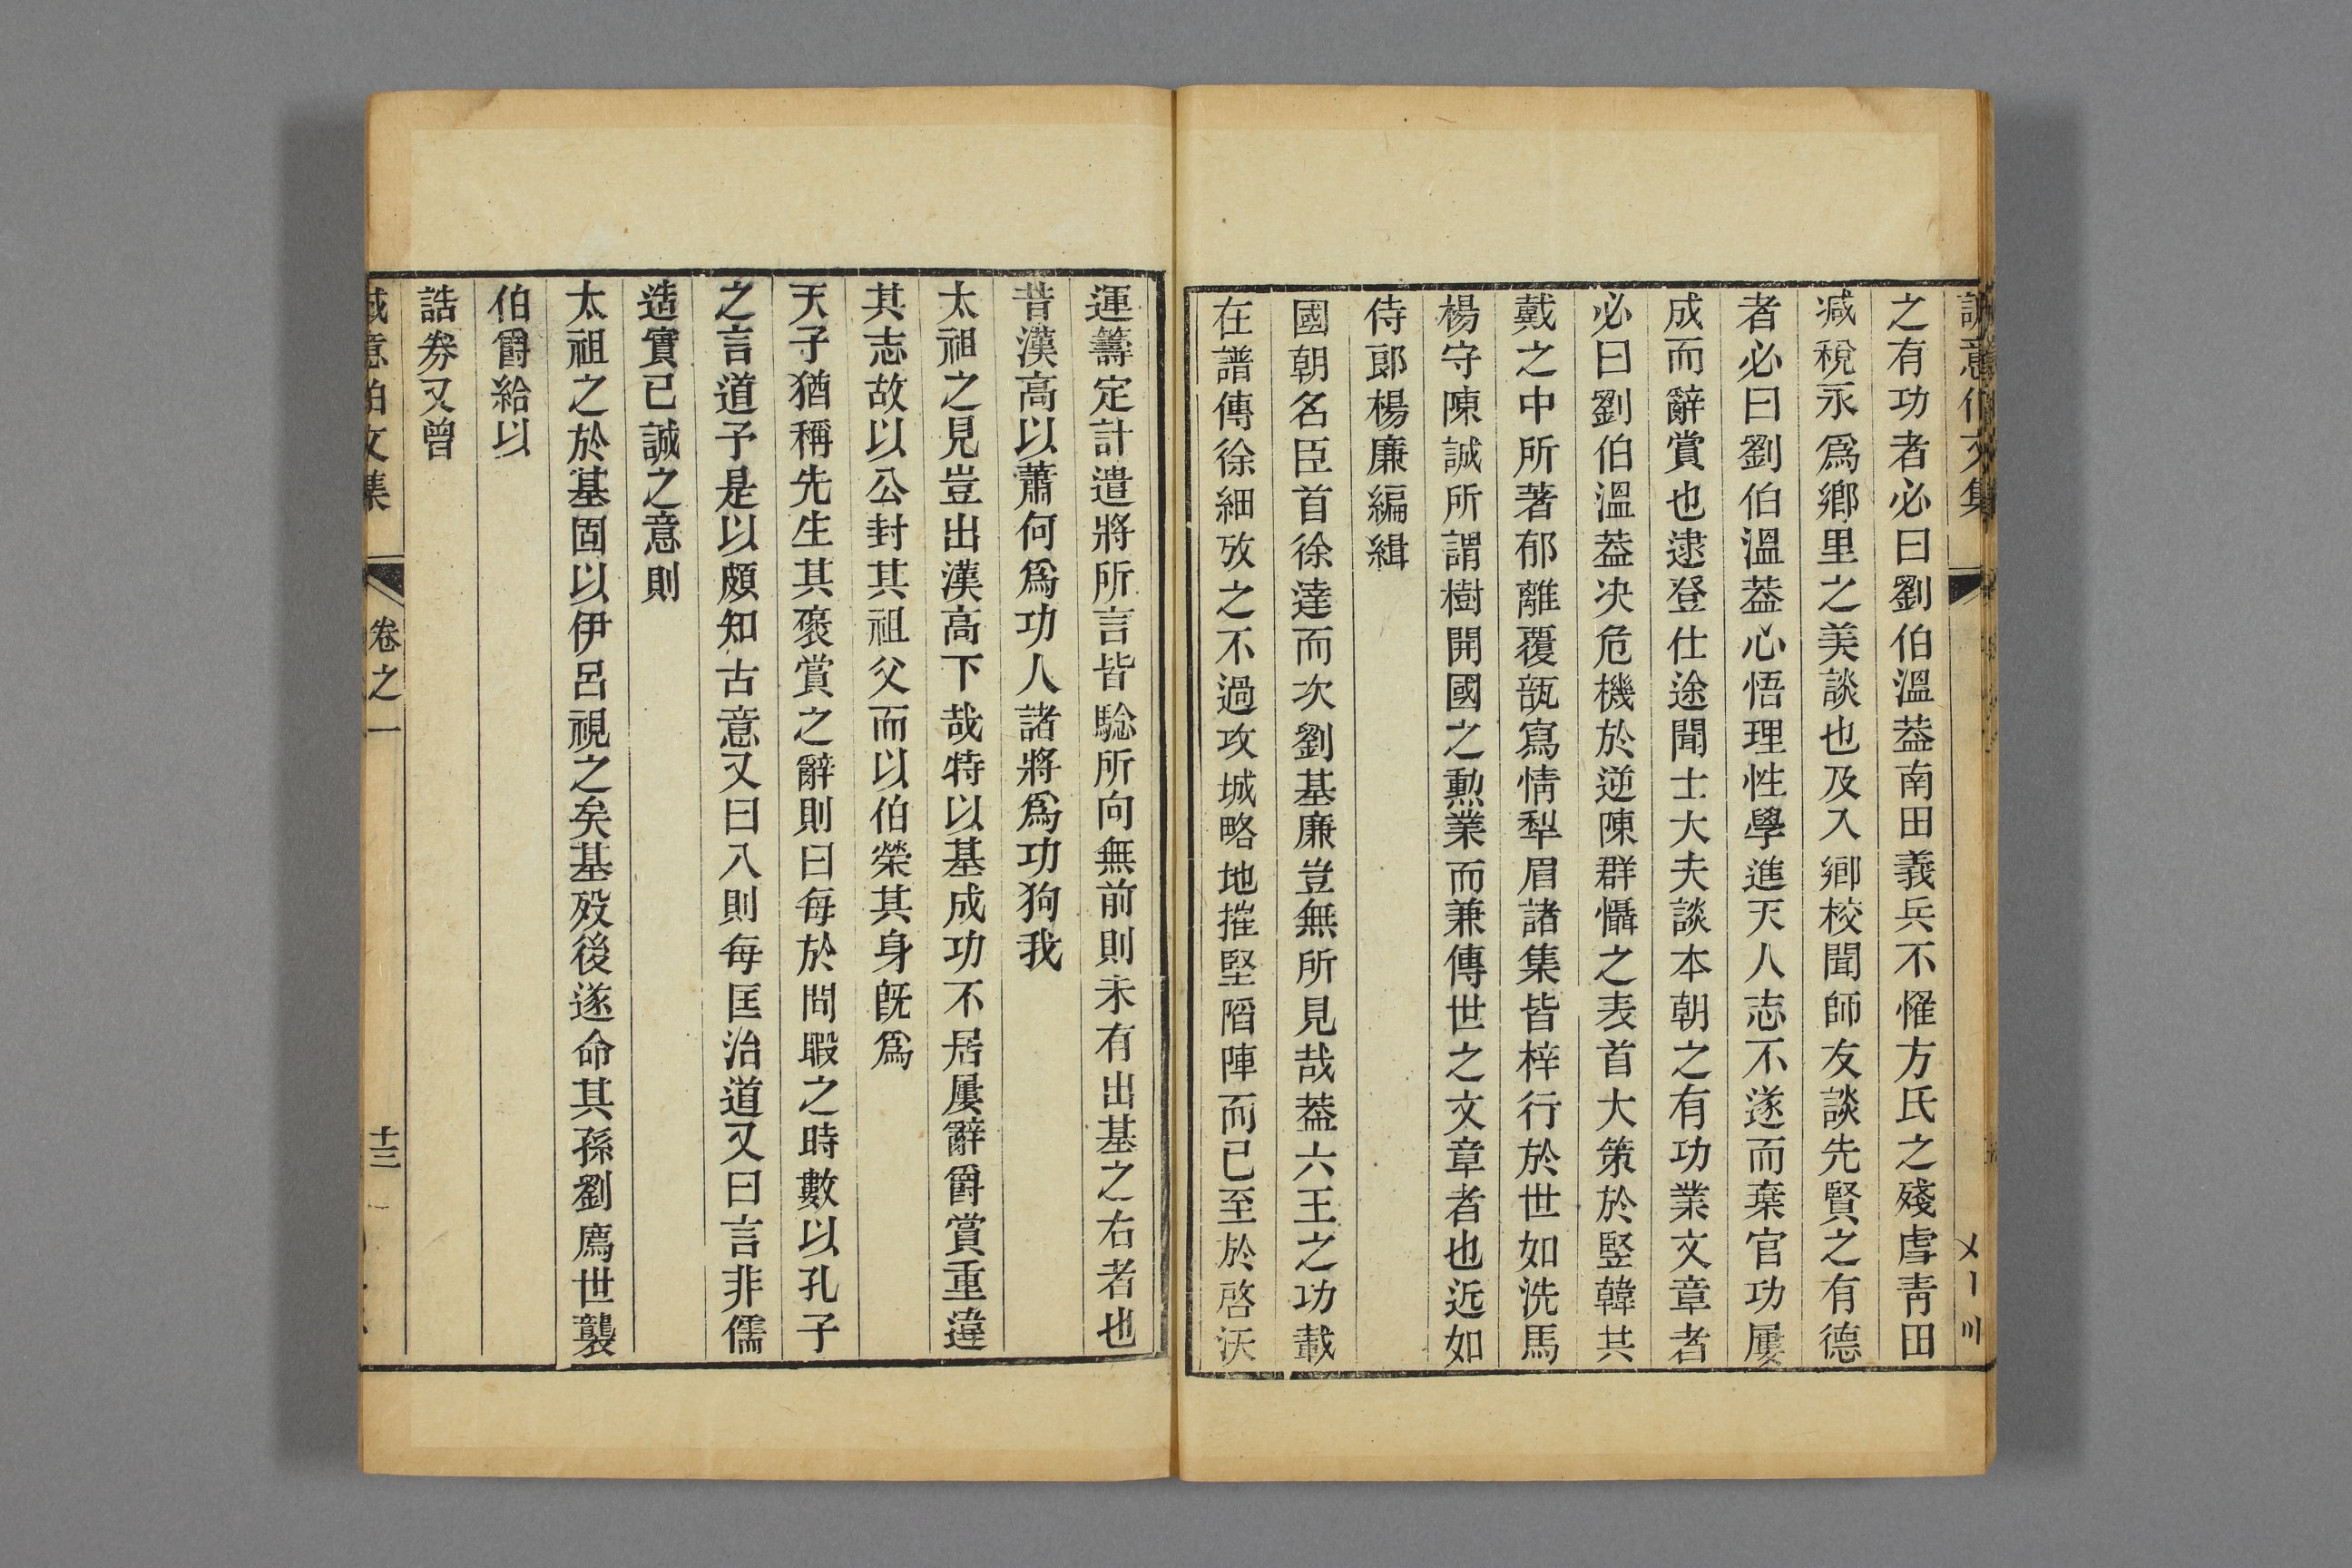 誠意伯文集
之有功者必曰劉伯溫葢南田義兵不罹方氏之殘虐靑田
减稅永爲鄕里之美談也及入鄉校聞師友談先賢之有德
者必曰劉伯溫葢心悟理性學進天人志不遂而棄官功屢
成而辭賞也逮登仕途聞士大夫談本朝之有功業文章者
必曰劉伯溫葢决危機於逆陳群懾之表首大策於豎韓共
戴之中所著郁離覆瓿寫情犁眉諸集皆梓行於世如洗馬
楊守陳誠所謂樹開國之勲業而兼傳世之文章者也近如
侍郎楊廉編緝
國朝名臣首徐達而次劉基廉豈無所見哉葢六王之功載
在譜傳徐細攷之不過攻城略地摧堅陷陣而已至於啓沃
運籌定計遣將所言皆騐所向無前則未有出基之右者也
昔漢高以蕭何爲功人諸將爲功狗我
太祖之見豈出漢高下哉特以基成功不居屢辭爵賞重違
其志故以公封其祖父而以伯榮其身旣爲
天子猶稱先生其褒賞之辭則曰每於間暇之時數以孔子
之言道予是以頗知古意又曰入則每匡治道又曰言非儒
造實已誠之意則
太祖之於基固以伊呂視之矣基歿後遂命其孫劉廌世襲
伯爵給以
誥券又曾
誠意伯文集
卷之一
十三